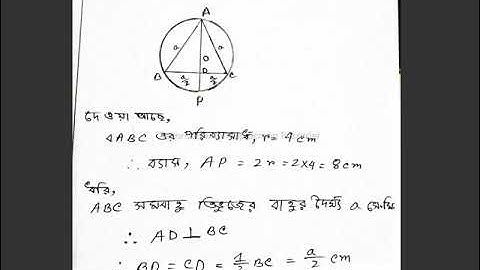 A
a a
O
B D C
a/2 a/2
P
দেওয়া আছে,
ΔABC এর পরিব্যাসার্ধ, r = 4 cm
∴ ব্যাস, AP = 2r = 2×4 = 8cm
ধরি,
ABC সমবাহু ত্রিভুজের বাহুর দৈর্ঘ্য a সেমি
∴ AD⊥BC
∴ BD = CD = 1/2 BC = a/2 cm